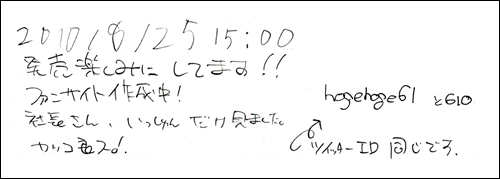 2010/8/25 15:00
発売楽しみにしてます!!
ファンサイト作成中!
社長さん、いっしゅんだけ見ました。
カッコ良スね!
hogehoge61 と610
ツイッターID 同じでろ.